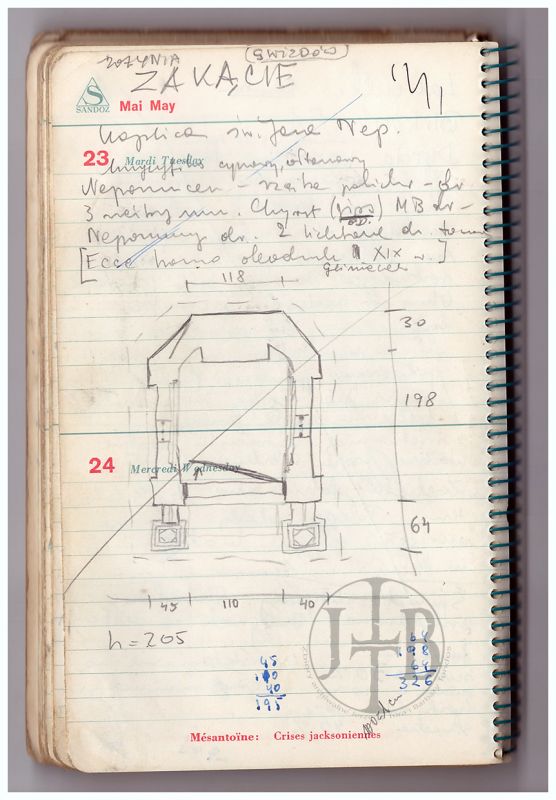 ŻOŁYNIA (GWIZDÓW)
ZAKĄCIE
SANDOZ
Mai May
Kaplica św. Jana Nep.
23 Mardi Tuesday
cynowy, ołtarzowy
Nepomucen – rzeźba polichr –
3 Chryst (gips) MB dr –
Nepomucen dr. 2 lichtarze dr.
[Ecce homo oleodruk XIX w.]
118
30
198
24 Mercredi Wednesday
64
45 110 40
h = 205
JTR
64
198
64
326
45
110
40
195
Mésantoïne: Crises jacksoniennes